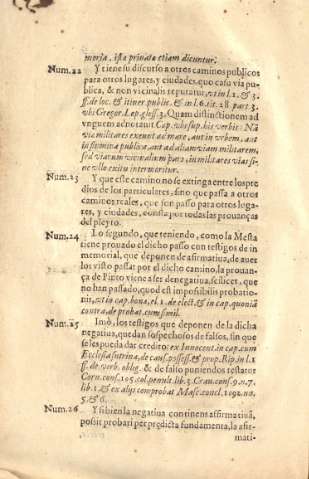 mersa, ista privata etiam dicuntur.
Num.22 Y tiene su discurso a otros caminos publicos
para otros lugares, y ciudades, quo casu via pu-
blica, & non vicinalis reputatur, vt in l. 2. & 3.
ff. de loc. & itiner. public. & in l. 6. tit. 28. part. 3.
vbi Gregor. Lop. gloss. 3. Quam distinctionem ad
vnguem adnotauit Cap. vbi sup. his verbis: Nã
via militares exeunt ad mare, aut in vrbem, aut
in flumina publica, aut ad aliam viam militarem,
sed viarum vicinalium pars, in militares vias si-
ne vllo exitu intermoritur.
Num.23 Y que este camino no se extinga entre los pre
dios de los particulares, sino que passa a otros
caminos reales, que son passo para otros luga-
res, y ciudades, consta por todas las prouanças
del pleyto.
Num.24 Lo segundo, que teniendo, como la Mesta
tiene prouado el dicho passo con testigos de in
memorial, que deponen de afirmatiua, de auer
los visto passar por el dicho camino, la prouan-
ça de Pinto viene a ser denegatiua, scilicet, que no
han passado, quod est impossibilis probatio-
nis, vt in cap. bona, el 1. de elect. & in cap. quoniã
contra, de probat. cum simil.
Num.25 Imò, los testigos que deponen de la dicha
negatiua, quedan sospechosos de falsos, sin que
se les pueda dar credito: ex Innocent. in cap. cum
Ecclesia sutrina, de caus. possess. & prop. Rip. in l. 1
ff. de verb. oblig. & de falso puniendos testatur
Corn. cons. 105. col. penult. lib. 3. Crau. cons. 9. n. 7.
lib. 1. & ex alijs comprobat Masc. concl. 1092. nu.
5. & 6.
Num.26 Y si bien la negatiua continens affirmatiuã,
possit probari per predicta fundamenta, la afir-
mati-